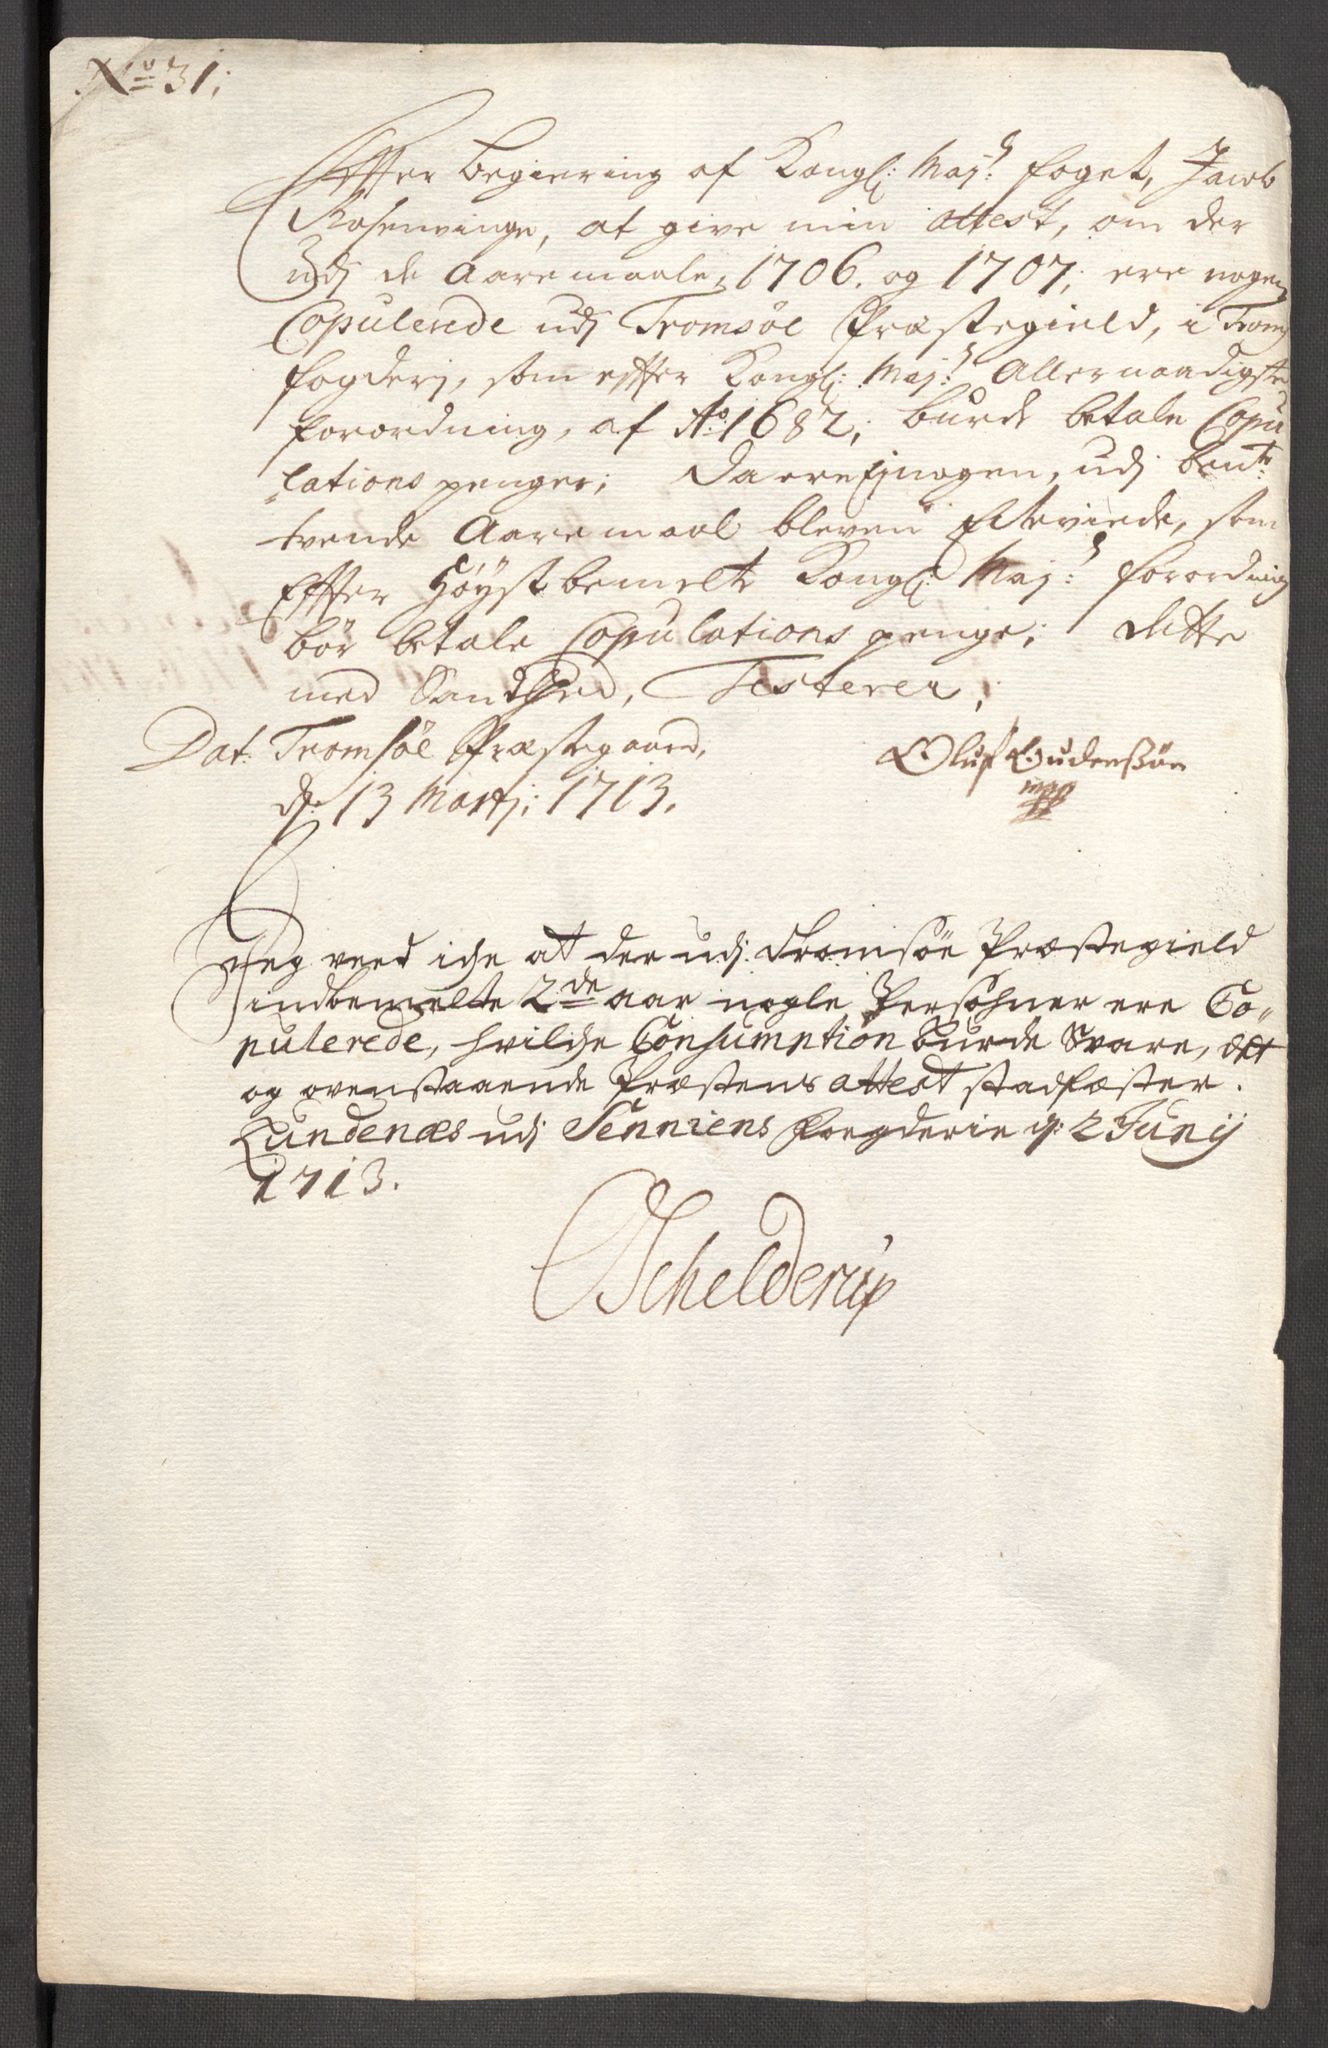 No 31;
Effter begiering af Kongl: Maj:s foget, Jacob
Rosenvinge, at give min attest, om der
udj de Aaremaale, 1706. og 1707; ere nogen
Copulerede udj Tromsöe Præstegield, i Troms
fogderj, som effter Kongl: Maj:s Allernaadigste
forordning, af Ao 1682; burde betale Copu
lations penger; Da ere Ej nogen, udj bem:te
tvende Aaremaal bleven Ecteviede, som
Effter Höystbemelte Kongl: Maj:s forordning
bör betale Copulations penge; dette
med Sandhed, Testerer;
Dat: Tromsöe Præstegaard,
d: 13 Martj: 1713.
Oluf Gudenssön
mpp
Jeg veed iche at der udj Tromsöe Præstegield
indbemelte 2de aar nogle Persohner ere Co-
pulerede, hvilche Consumption burde Svare, det
og ovenstaaende Præstens attest stadfæster.
Lundenæs udj Senniens Foegderie d: 2 Junij
1713.
Schelderup